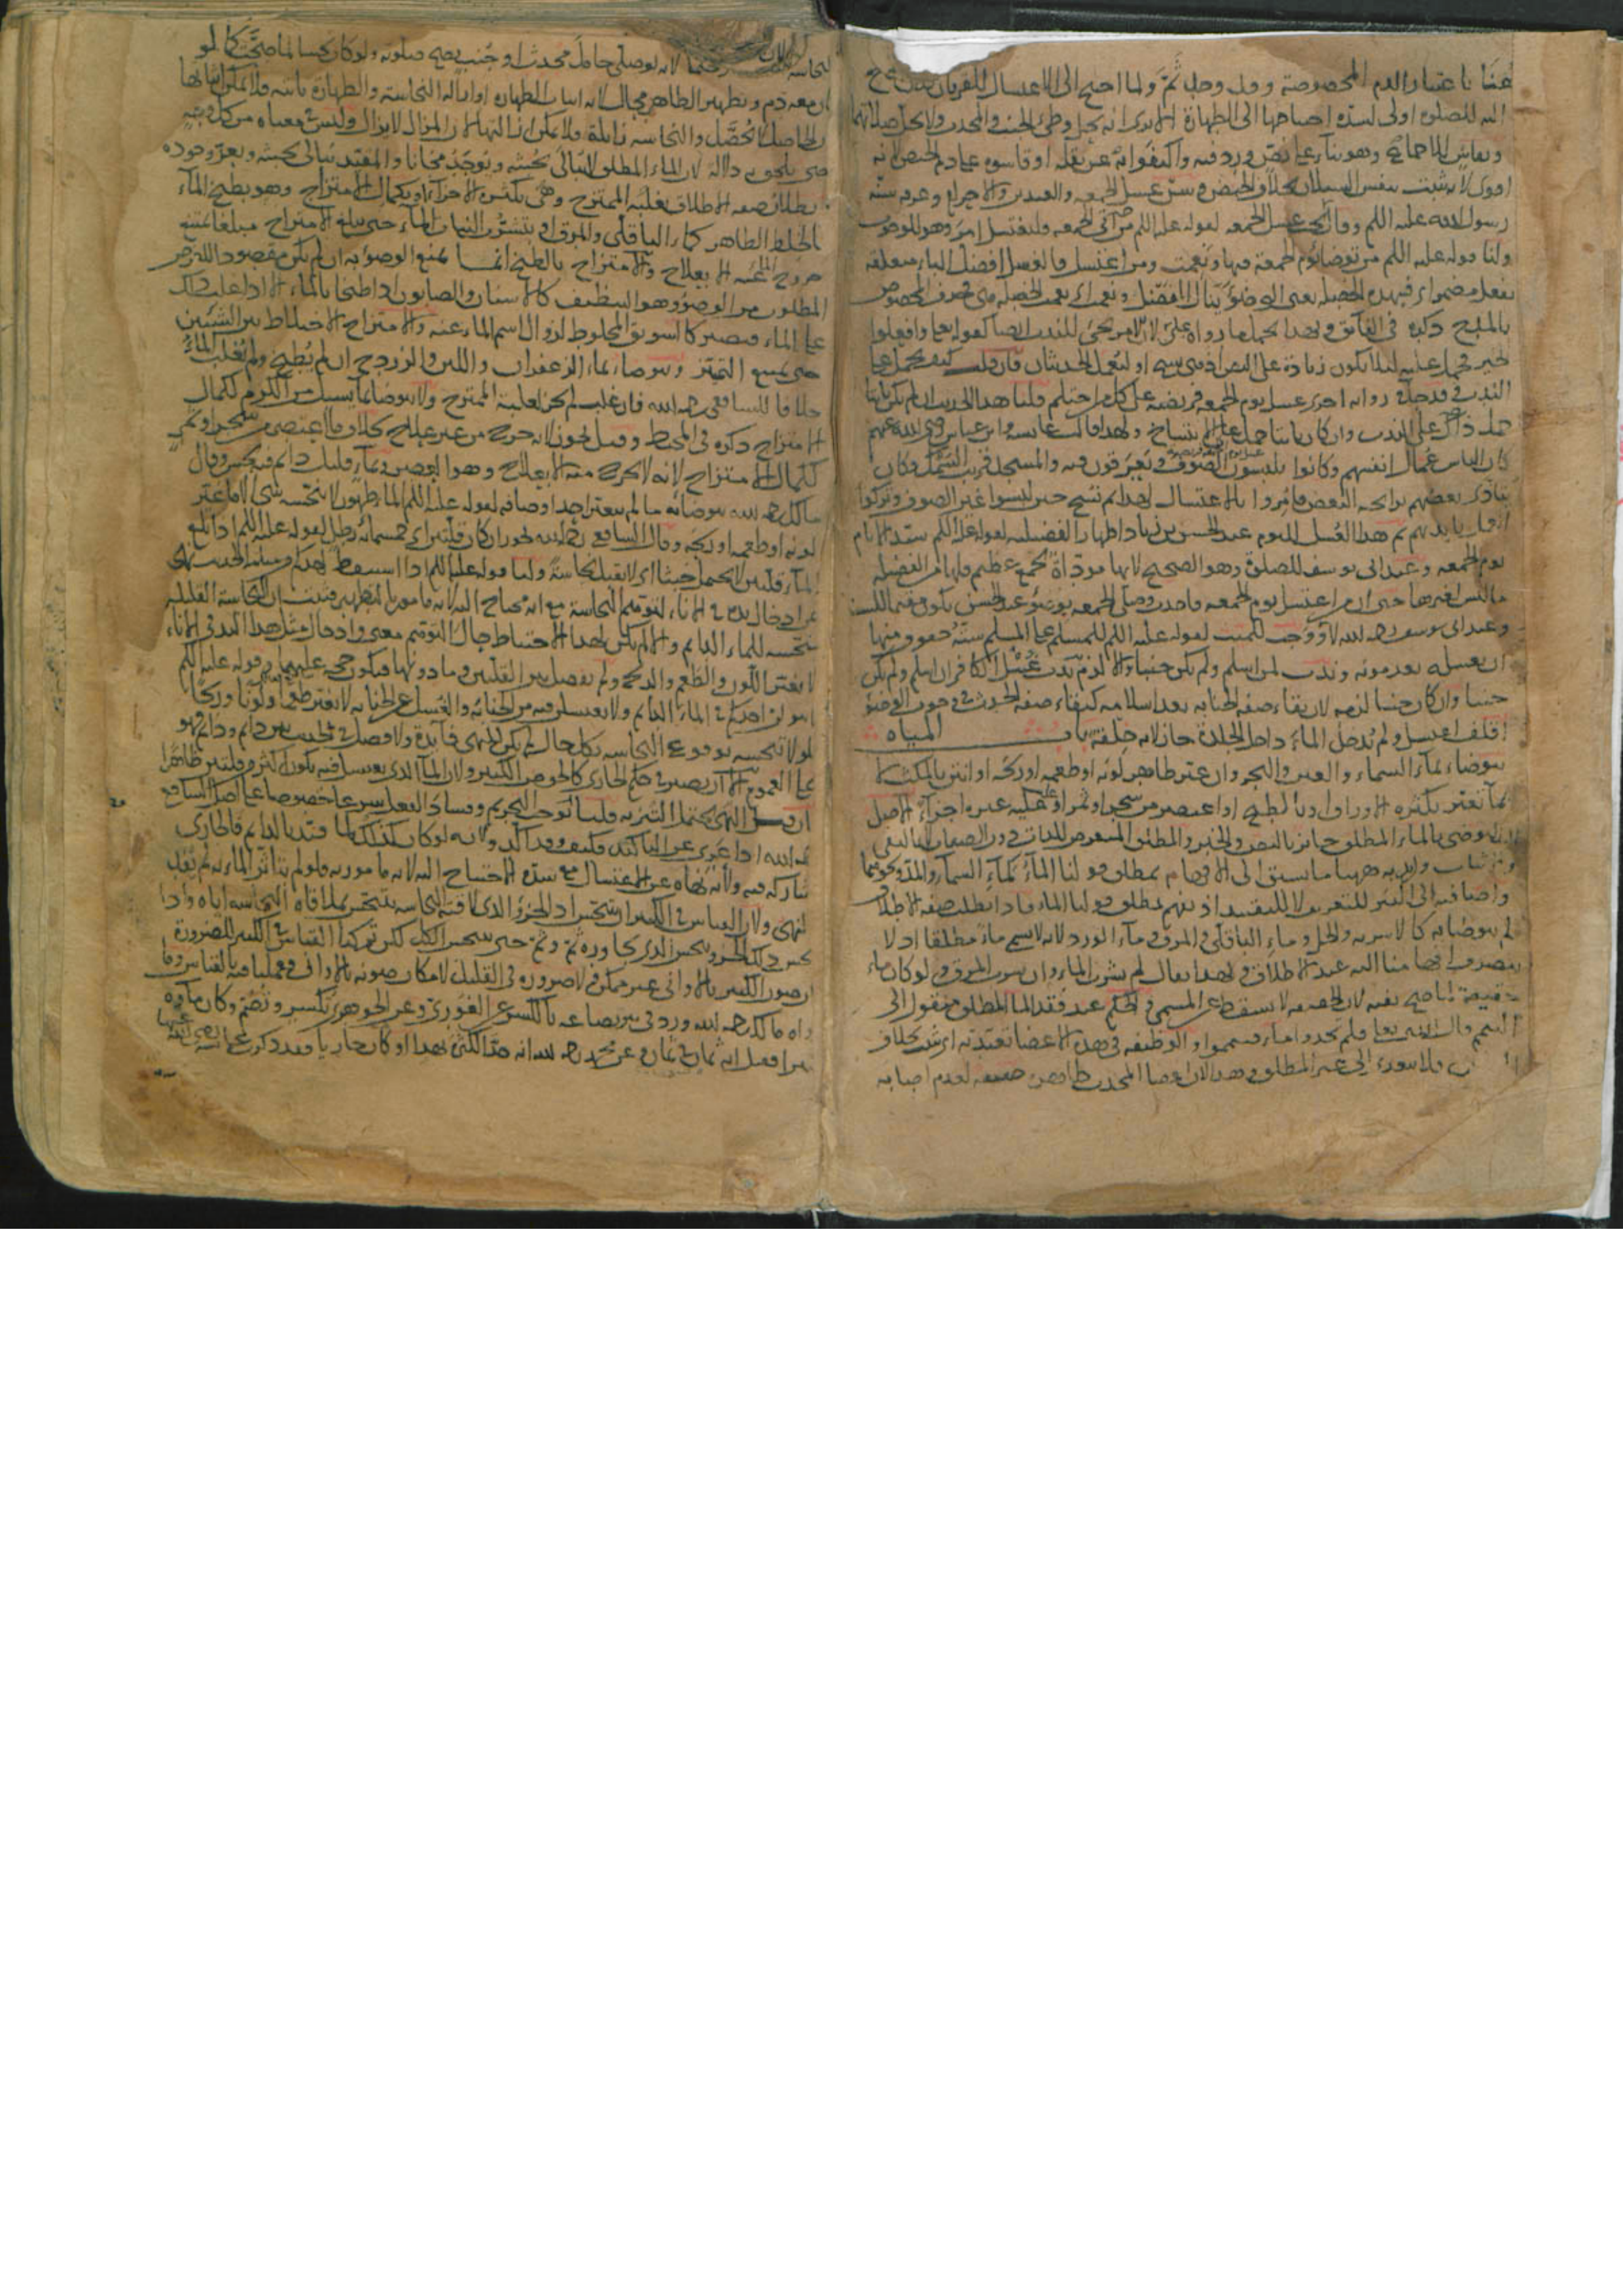 باعتبار الدم المخصوصة وقيل وجل ثم ولما احتيج الى الاغتسال للقربان
اليه للصلوة اولى لشدة احتياجها الى الطهارة الا يرى انه يحل وطئ الجنب والمحدث ولا يحل صلاتهما
ونفاس للاجماع وهو بناء على نص ورد فيه واكتفوا به عن نقله او قاسوه على دم الحيض لانه
اقوى لانه يثبت بنفس السيلان بخلاف الحيض وسن غسل الجمعه والعيدين والاحرام وعرفه سنه
رسول الله عليه اللم وقال يجب غسل الجمعه لقوله عليه اللم من اتى الجمعه فليغتسل امر وهو للوجوب
ولنا قوله عليه اللم من توضا يوم الجمعة فبها ونعمت ومن اغتسل فالغسل افضل الباء متعلقه
بفعل مضمر اى فبهذه الخصله يعنى الوضوء ينال الفضل ونعمت اى نعمت الخصله هى فحذف المخصوص
بالمدح ذكره فى الفائق وبهذا يحمل ما رواه على لان الامر يجئ للندب ايضا كقوله تعا وافعلوا
الخير فيحمل عليه لئلا يكون زيادة على النص او فى اوليعمل الحديثان فان قلت كيف يحمل على
الندب وقد جاء فى رواية اخرى غسل يوم الجمعه فريضة على كل محتلم قلنا هذا الحديث ان لم يكن ثابتا
حمل ذاك على الندب وان كان ثابتا حمل على الانتساخ ولهذا قالت عائشه وابن عباس رضى الله عنهم
كان الناس عمال انفسهم وكانوا يلبسون الصوف ويعرقون فيه والمسجد قريب السمك وكان
يتاذى بعضهم برائحة البعض فامروا بالاغتسال لهذا ثم نسخ حين لبسوا غير الصوف وتركوا
العمل بايديهم ثم هذا الغسل لليوم عند الحسن بن زياد اظهارا لفضيلته لقوله عليه اللم سيد الايام
يوم الجمعه وعند ابى يوسف للصلوة وهو الصحيح لانها موداة بجمع عظيم فلها من الفضيله
ما ليس لغيرها حتى ان من اغتسل يوم الجمعه فاحدث وصلى الجمعه بوضوء عند الحسن يكون مقيما للسنه
وعند ابى يوسف رحمه الله لا ووجب للميت لقوله عليه اللم للمسلم على المسلم ستة حقوق منها
ان يغسله بعد موته وندب لمن اسلم ولم يكن جنبا والا لزم ندب غسل الكافر ان اسلم ولم يكن
جنبا وان كان جنبا لزمه لان بقاء صفة الجنابه بعد اسلامه كبقاء صفة الحدث فى وجوب الوضوء
اقلف اغتسل ولم يدخل الماء داخل الجلدة جاز لانه خلقة باب المياه
يتوضاء بماء السماء والعين والبحر وان غير طاهر لونه او طعمه او ريحه او انتن بالمكث لا
بما تغير بكثرة الاوراق او بالطبخ او اعتصر من شجر او ثمر او غلب عليه غيره اجزاء الاصل
ان التوضى بالماء المطلق جائز بالنص والمطلق المتعرض للذات دون الصفات لا بالنفى
ولا بالاثبات والمراد به ههنا ما يسبق الى الافهام بمطلق قولنا الماء كماء السماء والمد ونحوهما
واضافته الى البئر للتعريف لا للتقييد اذ يفهم بمطلق قولنا الماء فاذا بطلت صفة الاطلاق
لم يتوضا به كالاشربه والخل وماء الباقلى والمرق وماء الورد لانه لا يسمى ماء مطلقا اذ لا
ينصرف افهامنا اليه عند الاطلاق ولهذا يقال لم يشرب الماء وان شرب المرق ولو كان ماء
حقيقة لما صح نفيه لان الحقيقة لا تسقط عن المسمى والحكم عند فقد الماء المطلق منقول الى
التيمم قال الله تعا فلم تجدوا ماء فتيمموا والوظيفه فى هذه الاعضا تعبدية بخلاف
فلا يتعدى الى غير المطلق وهذا لان اعضا المحدث طاهرة حقيقه لعدم اصابة
النجاسه لانه لو صلى حامل محدث او جنب يصح صلوته ولو كان نجسا لما صحت كما لو
كان معه دم وتطهير الطاهر محال لانه اثبات الطهاره او ازالة النجاسه والطهارة ثابته فلا يمكن اثباتها
لان الحاصل لا يحصل والنجاسه زايلة فلا يمكن ازالتها لان المزال لا يزال وليس فى معناه من كل وجه
حتى يلحق به دلالة لان الماء المطلق لا يبالى بخبثه ويوجد مجانا والمقيد يبالى بخبثه ويعز وجوده
بطلان صفة الاطلاق بغلبة الممتزج وهى بكثرة الاجزاء او بكمال الامتزاج وهو بطبخ الماء
بالخلط الطاهر كماء الباقلى والمرق او بتشرب النبات الماء حتى يبلغ الامتزاج مبلغا يمتنع
خروج الماء عنه الا بعلاج والامتزاج بالطبخ انما يمنع الوضوء به ان لم يكن مقصودا للغرض
المطلوب من الوضوء وهو التنظيف كالاشنان والصابون اذا طبخا بالماء الا اذا غلب ذلك
على الماء فيصير كالسويق المخلوط لزوال اسم الماء عنه والامتزاج الاختلاط بين الشيئين
حتى يمتنع التميز ويتوضاء بماء الزعفران واللبن والزردج ان لم يطبخ ولم يغلب الماء
خلافا للشافعى رحمه الله فان غلب لم يجز لغلبة الممتزج ولا يتوضا بما يسيل من الكرم لكمال
الامتزاج ذكره فى المحيط وقيل يجوز لانه خرج من غير علاج بخلاف ما اعتصر من شجر او ثمر
لكمال الامتزاج لانه لا يخرج منه الا بعلاج وهو العصر وبماء قليل دايم فيه نجس وقال
مالك رحمه الله يتوضا به ما لم يتغير احد اوصافه لقوله عليه اللم الماء طهور لا ينجسه شئ الا ما غير
لونه او طعمه او ريحه وقال الشافعى رحمه الله يجوز ان كان قلتين اى خمسمائة رطل لقوله عليه اللم اذا بلغ
الماء قلتين لا يحمل خبثا اى لا يقبل نجاسة ولنا قوله عليه اللم اذا استيقظ احدكم من منامه الحديث نهى
عن ادخال يده فى الاناء لتوهم النجاسة مع انه محتاج اليه لانه مامور بالتطهير فثبت ان النجاسة القليله
تنجسه للماء الدايم والا لم يكن لهذا الاحتياط حال التوهم معنى وادخال مثل هذا اليد فى الاناء
لا يغير اللون والطعم والريح ولم يفصل بين القلتين وما دونها فيكون حجة عليهما وقوله عليه اللم
لا يبولن احدكم فى الماء الدايم ولا يغتسلن فيه من الجنابه والغسل عن الجنابه لا يغير طعما ولونا وريحا
لو لا تنجسه بوقوع النجاسه بكل حال لم يكن للنهى فايدة ولا فصل فى الحديث بين دايم ودايم فهو
على العموم الا ان يصير فى حكم الجارى كالحوض الكبير ولان الماء الذى يغتسل فيه يكون اكثر من قلتين ظاهرا
فان قيل النهى يحتمل التنزيه قلنا يوجب التحريم وفساد الفعل شرعا خصوصا على اصل الشافعى
رحمه الله اذا عرى عن التاكيد فكيف وقد اكد ولانه لو كان كذلك لما قيد بالدايم فالجارى
يشاركه فيه ولانه نهاه عن الاغتسال مع شدة الاحتياج اليه لانه مامور به فلو لم يتاثر الماء به لم يفد
النهى ولان القياس فى الكثير ان يتنجس اذ الجزء الذى لاقته النجاسه يتنجس بملاقاة النجاسه اياه واذا
تنجس ذلك الجزء تنجس الذى يجاوره ثم وثم حتى ينجس الكل لكن تركنا القياس فى الكثير للضرورة
اذ صون الكثير بالاوانى غير ممكن ولا ضرورة فى القليل لامكان صونه بالاوانى فعملنا فيه بالقياس وما
رواه مالك رحمه الله ورد فى بئر بضاعه بالكسر عن الغورى وعن الجوهرى تكسر وتضم وكان ماؤه